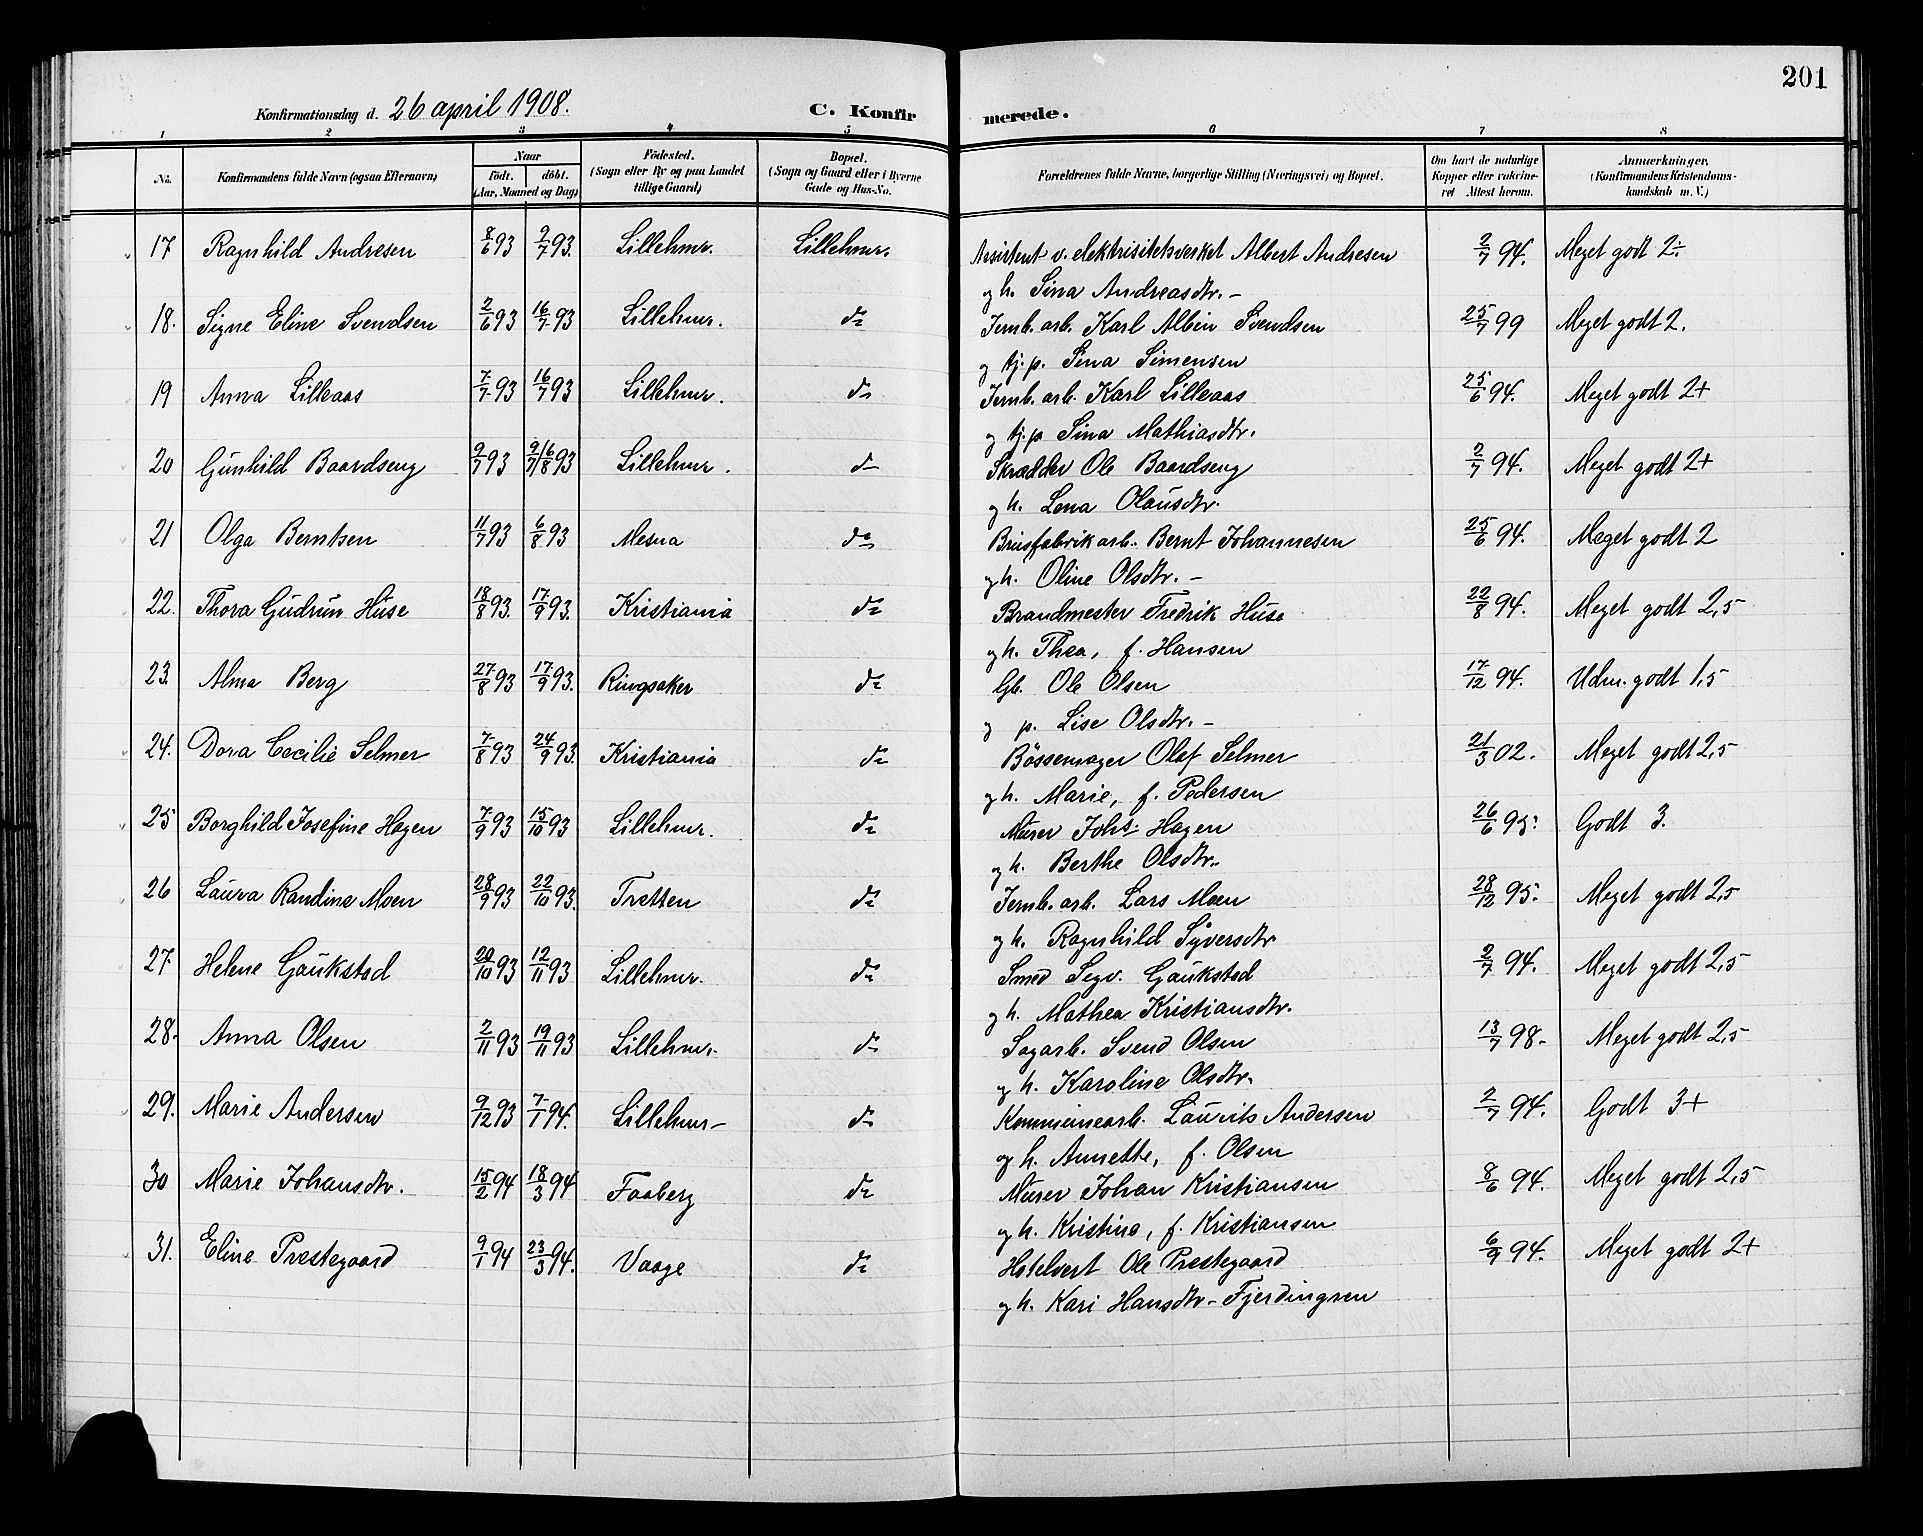 201
Konfirmationsdag d. 26 april 1908. C. Konfirmerede.
1 2 3 4 5 6 7 8
No. Konfirmandens fulde Navn (ogsaa Efternavn) Naar födt. döbt. (Aar, Maaned og Dag) Födested. (Sogn eller By og paa Landet tillige Gaard) Bopæl. (Sogn og Gaard eller i Byerne Gade og Hus-No. Forældrenes fulde Navne, borgerlige Stilling (Næringsvei) og Bopæl. Om havt de naturlige Kopper eller vakcineret Attest herom. Anmærkninger. (Konfirmandens Kristendomskundskab m. V.)
17 Ragnhild Andresen 8/6 93 2/7 93. Lillehmr. Lillehmr. Assistent v. elektrisitetsverket Albert Andresen 2/7 94. Meget godt 2÷
og h. Sina Andreasdtr. –
18. Signe Eline Svendsen 2/6 93 16/7 93 Lillehmr. do Jernb. arb. Karl Albin Svendsen 25/7 99 Meget godt 2.
og hj. p. Sina Simensen
19 Anna Lilleaas 7/7 93 16/7 93 Lillehmr. do Jernb. arb. Karl Lilleaas 25/6 94. Meget godt 2+
og hj. p. Sina Mathiasdtr.
20 Gunhild Baardseng 9/7 93 9/7 6/8 93 Lillehmr. do Skrædder Ole Baardseng 2/7 94. Meget godt 2+
og h. Lena Olausdtr.
21 Olga Berntsen 11/7 93 6/8 93 Mesna do Brusfabrikarb. Bernt Johannesen 25/6 94. Meget godt 2
og h. Oline Olsdtr. –
22. Thora Gudrun Huse 18/8 93. 17/9 93. Kristiania do Brandmester Fredrik Huse 22/8 94. Meget godt 2,5
og h. Thea, f. Hansen
23. Alma Berg 27/8 93 17/9 93. Ringsaker do Gb. Ole Olsen 17/12 94. Udm. godt 1,5
og p. Lise Olsdtr. –
24. Dora Cecilie Selmer 7/8 93 24/9 93. Kristiania do Bössemager Olaf Selmer 21/3 02. Meget godt 2,5
og h. Marie, f. Pedersen
25 Borghild Josefine Hagen 7/9 93 15/10 93 Lillehmr. do Murer Johs Hagen 26/6 95. Godt 3.
og h. Berthe Olsdtr.
26 Laura Randine Moen 28/9 93 22/10 93. Tretten do Jernb. arb. Lars Moen 28/12 95. Meget godt 2,5
og h. Ragnhild Syversdtr
27. Helene Gaukstad 20/10 93 12/11 93 Lillehmr. do Smed Segv. Gaukstad 2/7 94. Meget godt 2,5
og h. Mathea Kristiansdtr.
28. Anna Olsen 2/11 93 19/11 93 Lillehmr. do Sagarb. Svend Olsen 13/7 98. Meget godt 2,5
og h. Karoline Olsdtr.
29. Marie Andersen 9/12 93 7/1 94. Lillehmr – do Kommunearb. Laurits Andersen 2/7 94. Godt 3+
og h. Annette, f. Olsen
30 Marie Johansdtr. 15/2 94 18/3 94 Faaberg do Murer Johan Kristiansen 8/6 94. Meget godt 2,5
og h. Kristine, f. Kristiansen
31. Eline Prestegaard 9/1 94 23/3 94. Vaage do Hotelvert Ole Prestegaard 6/9 94. Meget godt 2+
og h. Kari Hansdtr – Fjerdingren